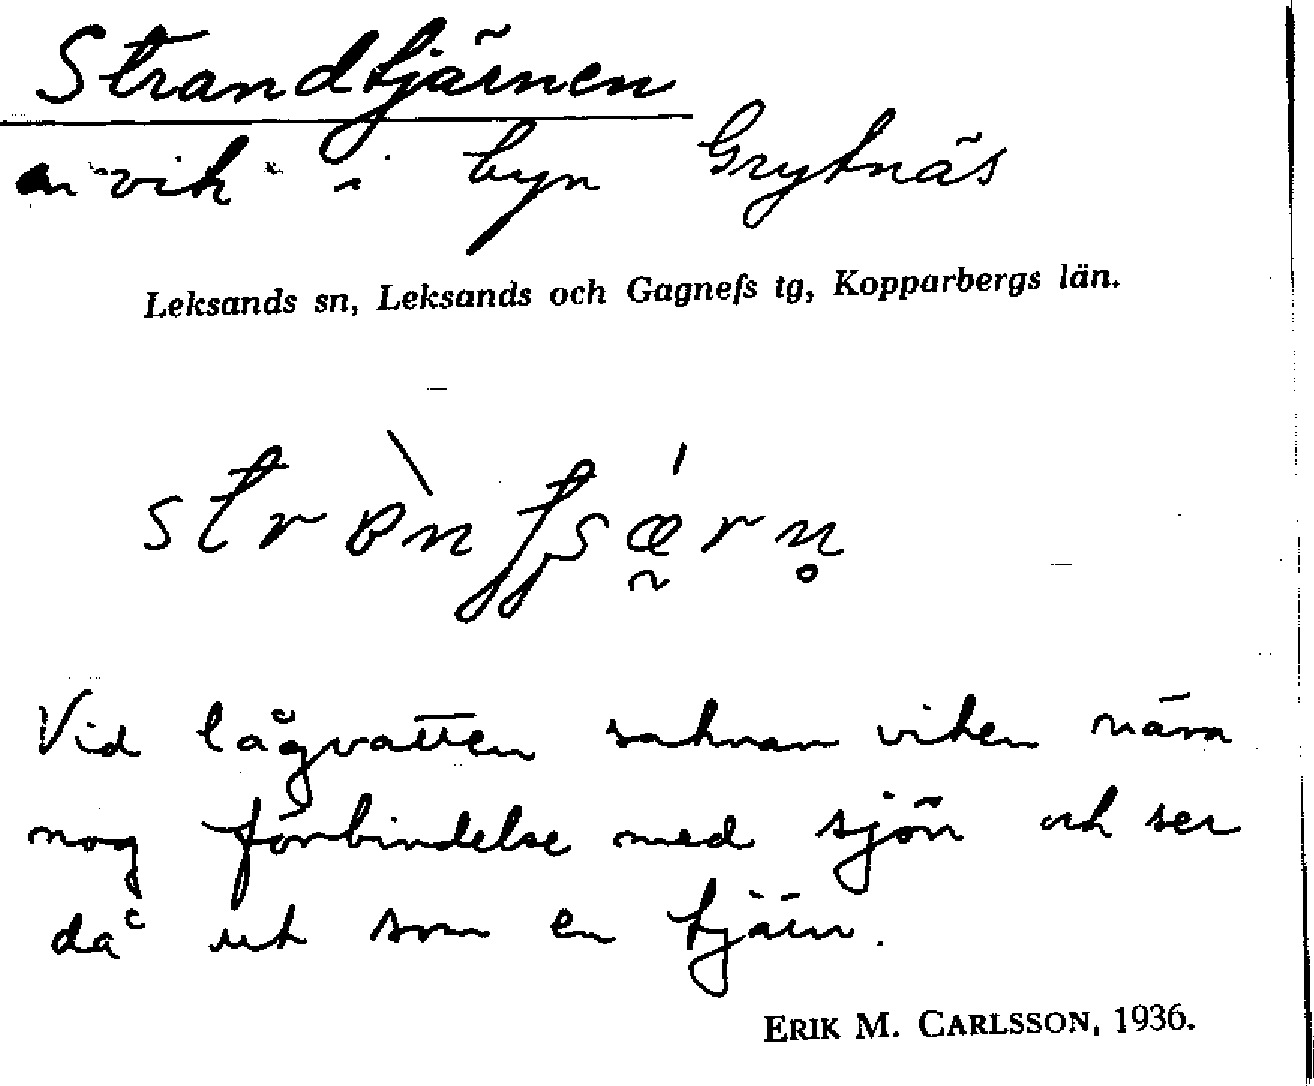 Strandtjärnen
en "vik" i byn Grytnäs
Leksands sn, Leksands och Gagnefs tg, Kopparbergs län.
Vid lågvatten saknar viken nära
nog förbindelse med sjön och ser
då ut som en tjärn.
ERIK M. CARLSSON, 1936.